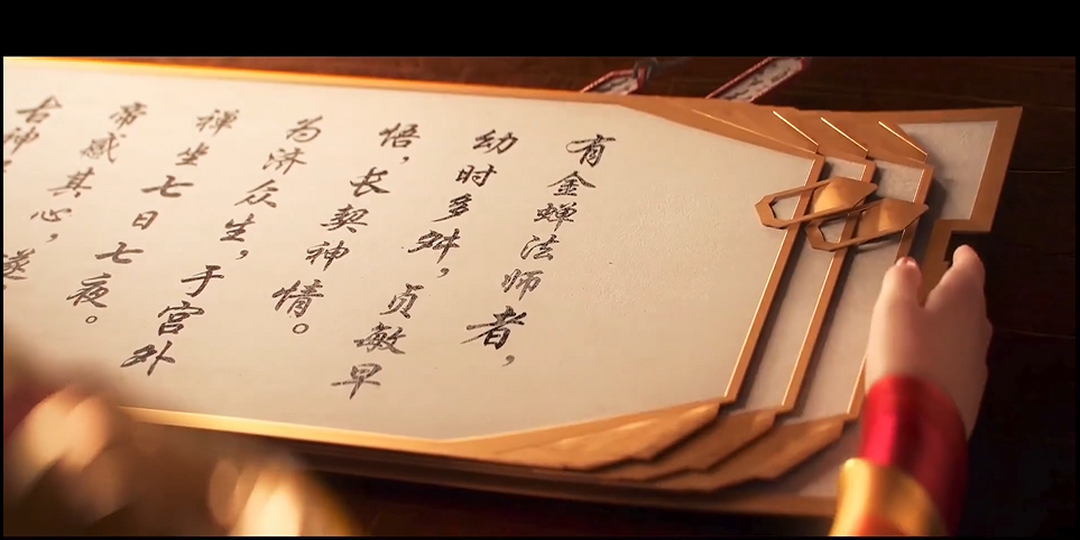 有金蝉法师者，
幼时多舛，贞敏早
悟，长契神情。
为济众生，于宫外
禅坐七日七夜。
帝感其心，遂